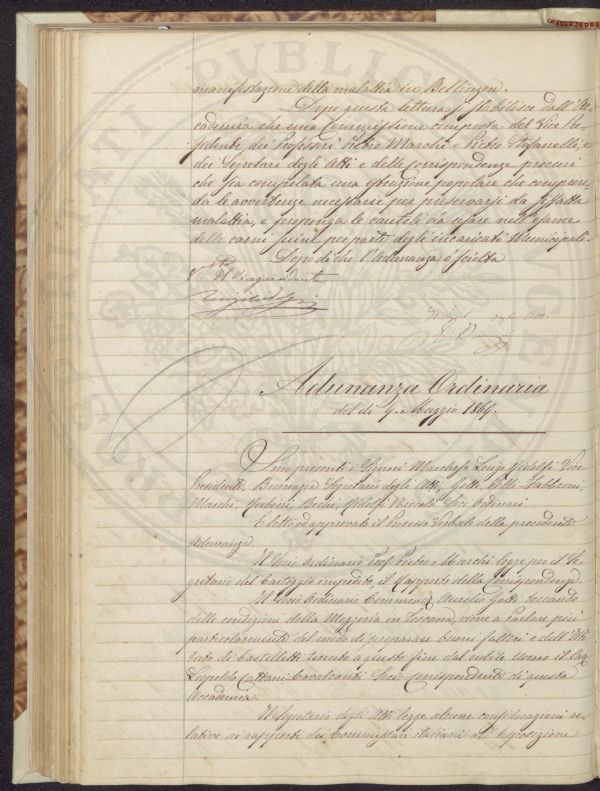 manifestazione della malattia in Bellinzon.
Dopo questa lettura si stabilisce dall'Ac-
cademia che una Commissione composta del Vice Pre-
sidente, dei Professori Pietro Marchi e Pietro Stefanelli e
dei Segretari degli Atti e delle Corrispondenze procuri
che sia compilata una istruzione popolare che compren-
da le avvertenze necessarie per preservarsi da siffatta
malattia, e proponga le cautele da usare nell'esame
delle carni suine per parte degli incaricati Municipali.
Dopo di che l'Adunanza è sciolta
Il Vicepresidente
Adunanza Ordinaria
del dì 9. Maggio 1869.
Sono presenti i Signori Marchese Luigi Ridolfi Vice
Presidente, Segretario degli Atti, Gotti, Fabbroni,
Marchi, Rubieri, Bechi, Ridolfi Niccolò Soci Ordinari
È letto ed approvato il Processo Verbale della precedente
Adunanza
Il Socio Ordinario Prof. Pietro Marchi legge per il Se-
gretario del Carteggio impedito, il rapporto della Corrispondenza.
Il Socio Ordinario Commend. Aurelio Gotti, toccando
delle condizioni della Mezzeria in Toscana, viene a Parlare più
particolarmente del modo di preparare buoni fattori e dell'Isti-
tuto di Castelletti tenuto a questo fine dal nobile Uomo il Cav.
Leopoldo Cattani-Cavalcanti Socio Corrispondente di questa
Accademia.
Il Segretario degli Atti legge alcune considerazioni re-
lative ai rapporti dei Commissari italiani all'Esposizione